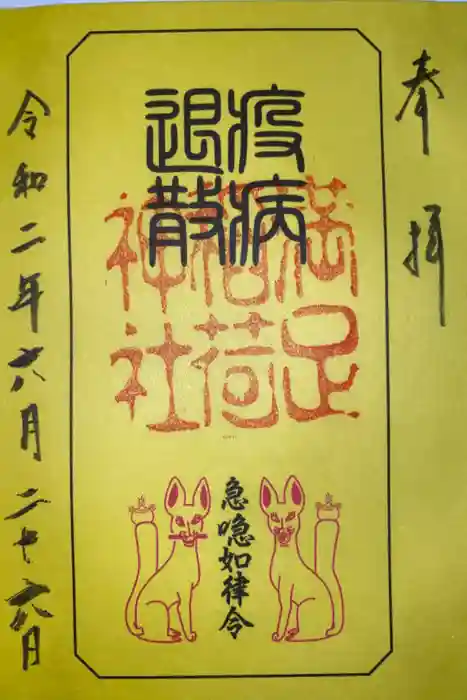 奉拝
疫病
退散
満足
稲荷
神社
急急如律令
令和二年六月二十六日